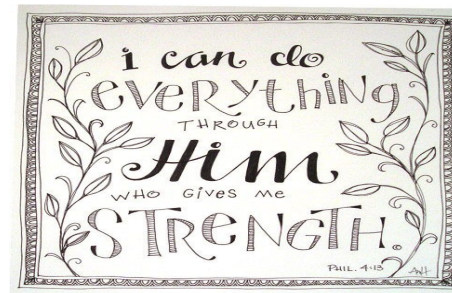 i can do
everything
THROUGH
Him
WHO GIVES ME
STRENGTH.
PHIL. 4:13
ANH